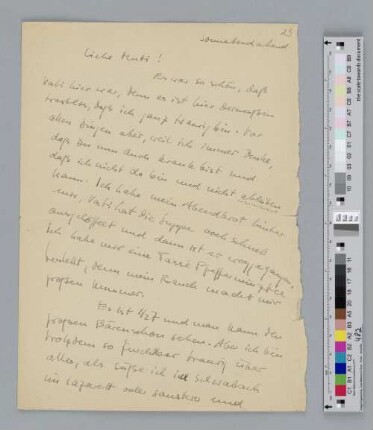 29
Sonnabendabend
Liebe Mutti!
Es war so schön, daß
Vati hier war, denn es ist hier dermaßen
daß ich ganz traurig bin. Vor
allen Dingen aber, weil ich immer denke,
daß Du nun auch krank bist und
daß ich nicht da bin und nicht
kann. Ich habe mein Abendbrot hinter
mir, Vati hat die Suppe noch schnell
und dann ist er weggegangen.
Ich habe mir eine Tasse Pfefferminztee
bestellt, denn mein Bauch macht mir
großen Kummer.
Es ist 1/2 7 und man kann den
großen Bären schon sehen. Aber ich bin
trotzdem so furchtbar traurig über
alles, als säße ich in Schwabach
im Lazarett oder sonstwo und
482